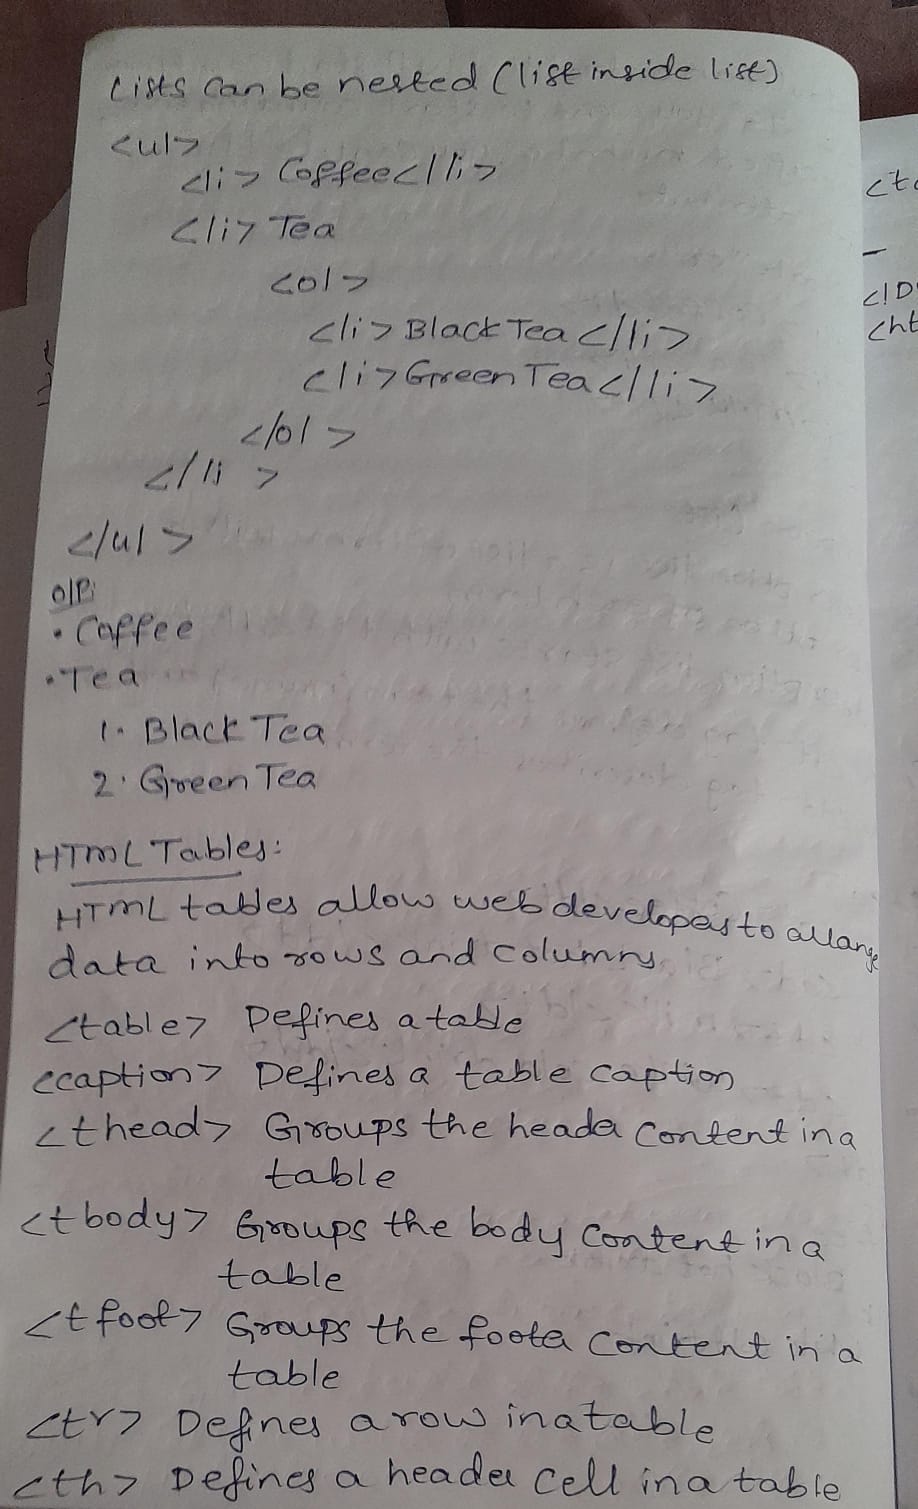 Lists can be nested (list inside list)
<ul>
<li> Coffee</li>
<li> Tea
<ol>
<li> Black Tea </li>
<li> Green Tea </li>
</ol>
</li>
</ul>
o/p:
• Coffee
• Tea
1. Black Tea
2. Green Tea
HTML Tables:
HTML tables allow web developers to arrange
data into rows and columns
<table> Defines a table
<caption> Defines a table caption
<thead> Groups the header content in a
table
<tbody> Groups the body content in a
table
<tfoot> Groups the footer content in a
table
<tr> Defines a row in a table
<th> Defines a header cell in a table
<!D
<ht